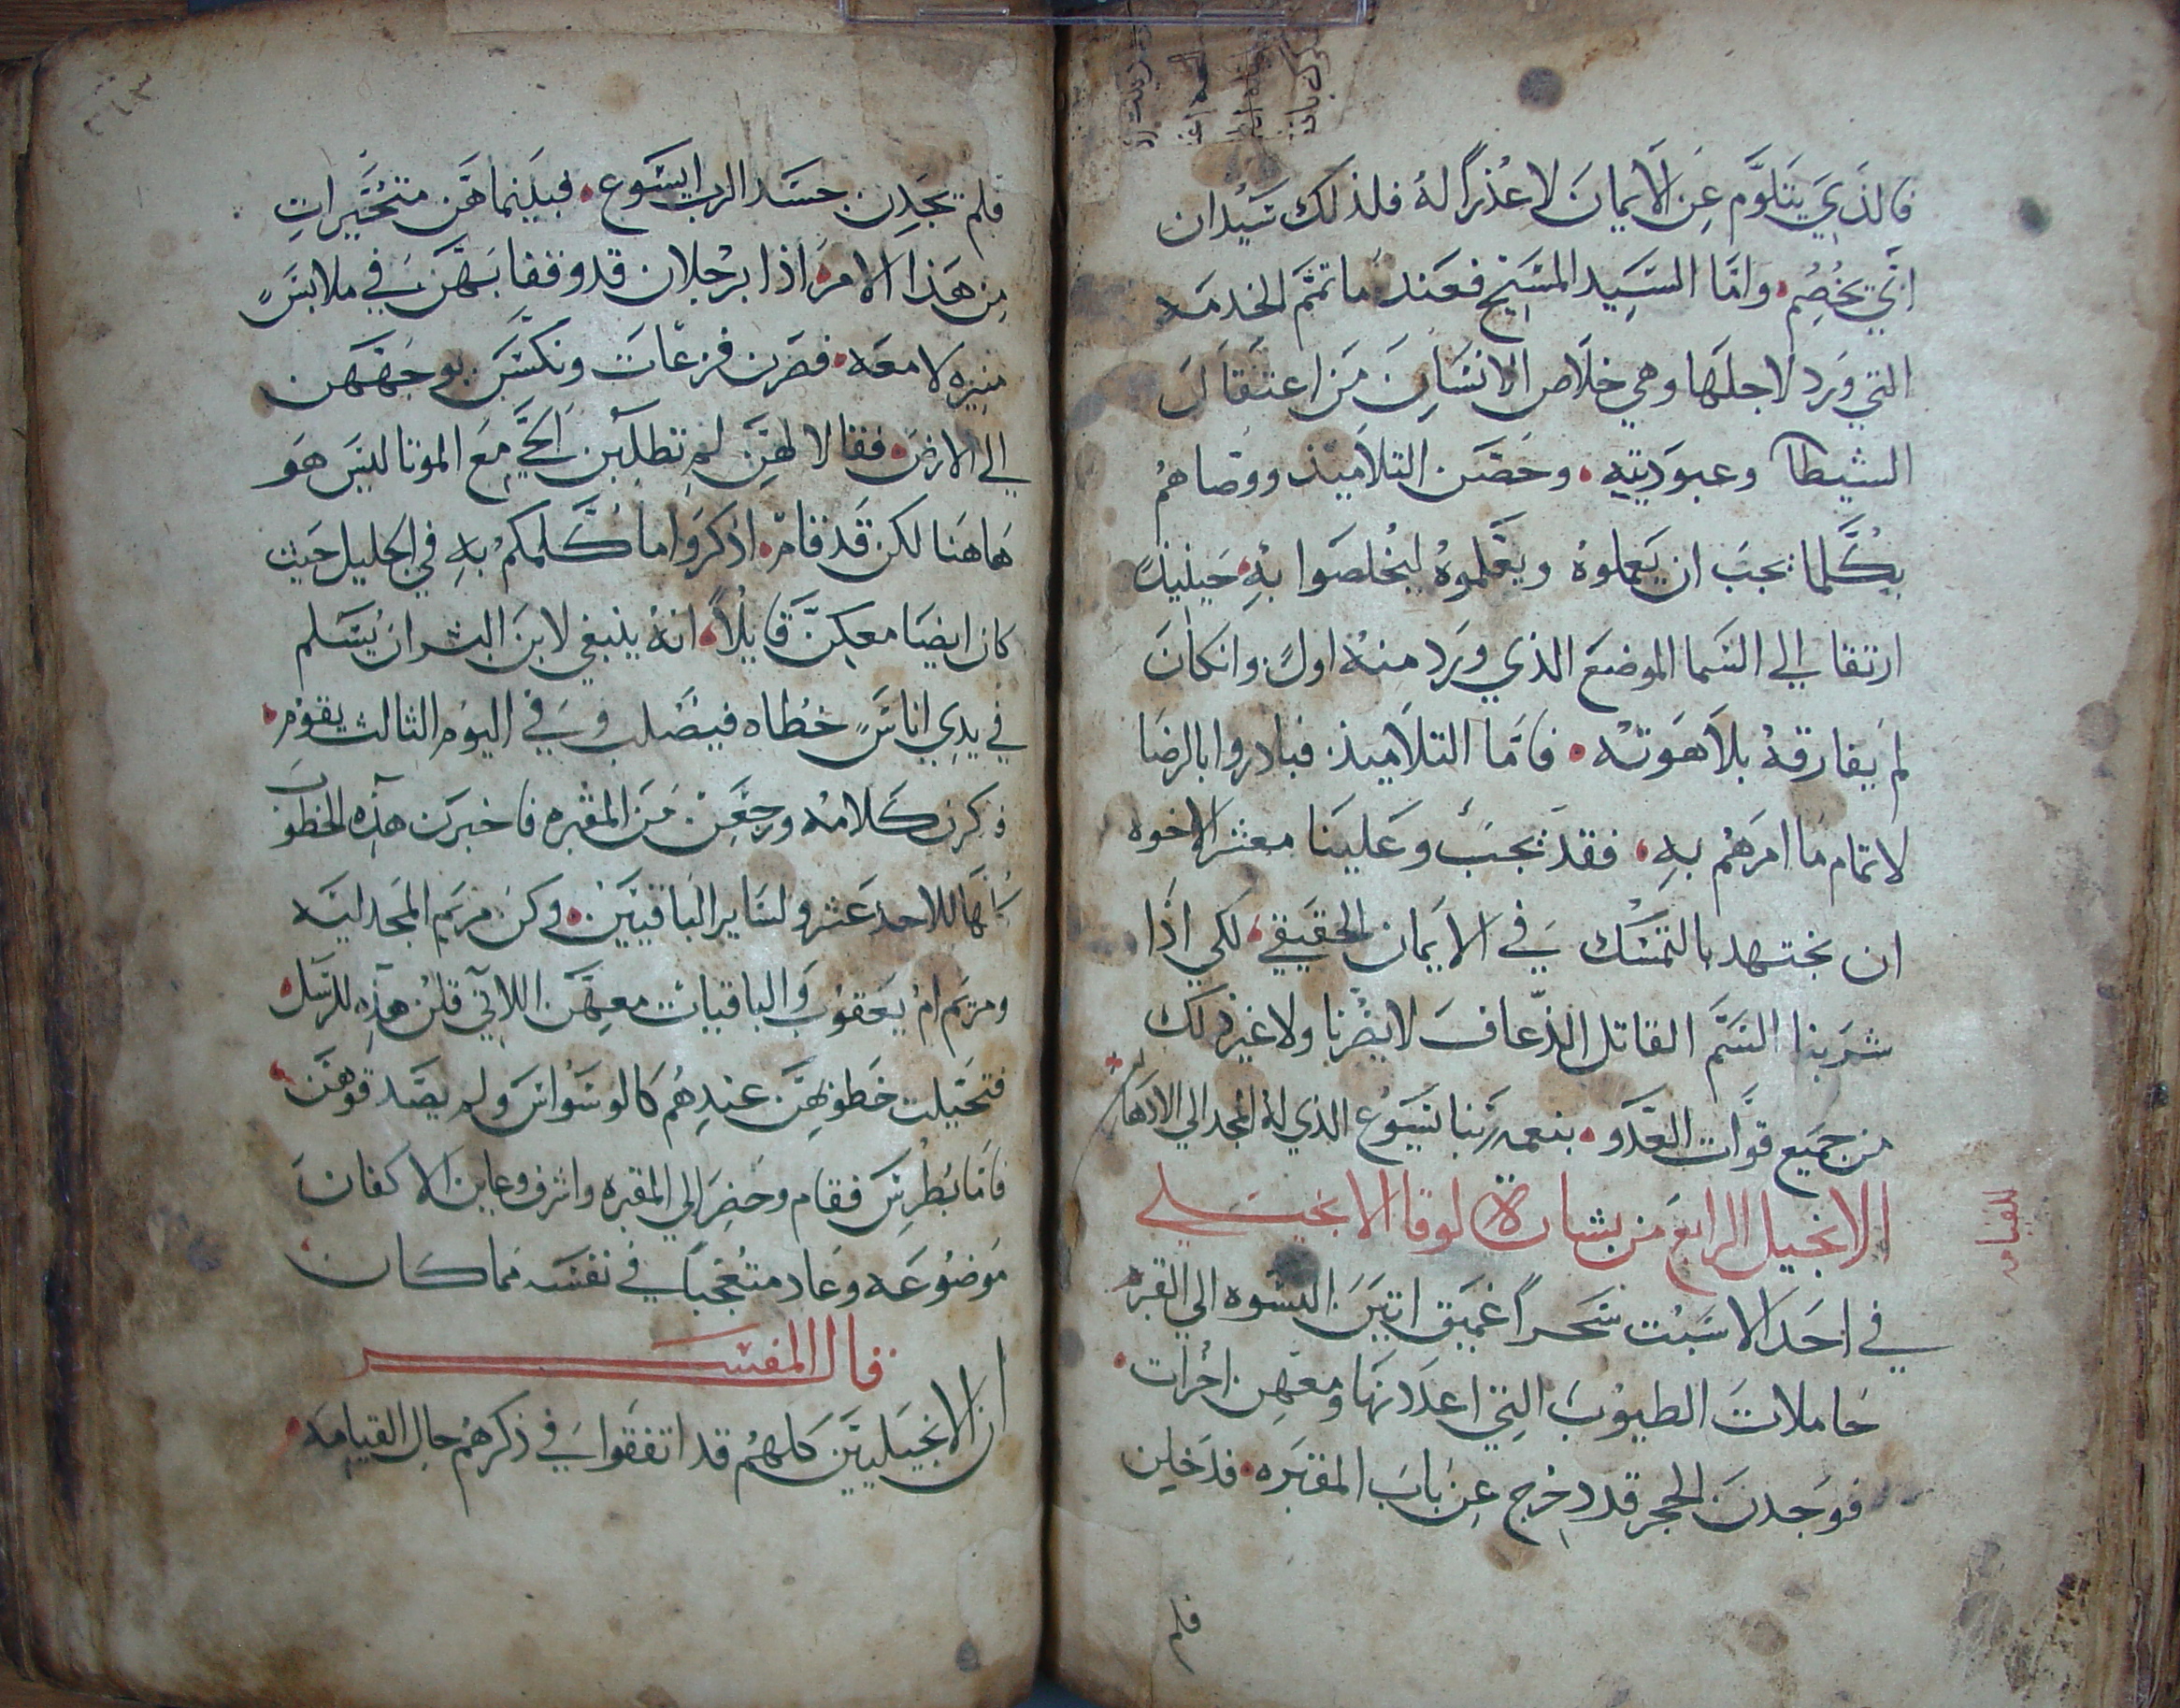 فالذي يتلوم عن الايمان لا عذرًا له فلذلك سيدان
اني يخصم وامّا السيد المسيح فعندما تمم الخدمه
التي ورد لاجلها وهي خلاص الانسان من اعتقال
الشيطا وعبوديته وحضن التلاميذ ووصاهم
بكلما يجب ان يعملوه ويعلموه ليخلصوا به حينيذٍ
ارتقا الي السما الموضع الذي ورد منه اولً وانكان
لم يفارقه بلاهوته فاما التلاميذ فبادروا بالرضا
لاتمام ما امرهم به فقد يجب وعلينا معشر الاخوه
ان نجتهد بالتمسك في الايمان الحقيقي لكي اذا
شربنا السم القاتل الذعاف لا يضرنا ولا غير ذلك
من جميع قوات العدو بنعمة ربنا يسوع الذي له المجد الي الادهار
الانجيل الرابع من بشارة لوقا الانجيلي
في احد الاسبت سحراً عميق اتين النسوه الي القبر
حاملات الطيوب التي اعددنها ومعهن اخرات
فوجدن الحجر قد دحرج عن باب المقبره فدخلن
فلم
فلم يجدن جسد الرب ايسوع فبينما هن متحيرات
من هذا الامر اذا برجلان قد وقفا بهن في ملابسٍ
منيره لامعه فصرن فزعات ونكسن بوجههن
الي الارض فقالا لهن لم تطلبن الحي مع الموتا ليس هو
هاهنا لكن قد قام اذكروا ما كلمكم به في الجليل حيث
كان ايضا معكن قايلاً انه ينبغي لابن البشر ان يسلم
في يدي اناسٍ خطاه فيصلب وفي اليوم الثالث يقوم
فذكرن كلامه ورجعن من المقبره فاخبرن هذه الخطوب
كلها للاحد عشر ولساير الباقيين وكن مريم المجدليه
ومريم ام يعقوب والباقيات معهن اللاتي قلن هذه للرسل
فتخيلت خطوبهن عندهم كالوسواس ولم يصدقوهن
فاما بطرس فقام وحضر الي المقبره واشرف وعاين الاكفان
موضوعه وعاد متعجباً في نفسه مما كان
قال المفسر
ان الانجيليين كلهم قد اتفقوا في ذكرهم حال القيامه